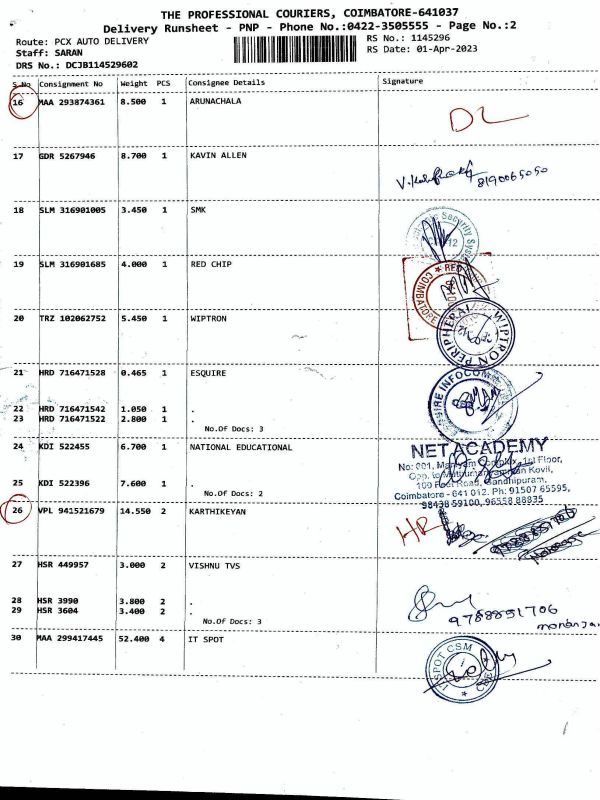 THE PROFESSIONAL COURIERS, COIMBATORE-641037
Delivery Runsheet - PNP - Phone No.:0422-3505555 - Page No.:2
Route: PCX AUTO DELIVERY
RS No.: 1145296
Staff: SARAN
RS Date: 01-Apr-2023
DRS No.: DCJB114529602
S.No Consignment No Weight PCS Consignee Details Signature
16 MAA 293874361 8.500 1 ARUNACHALA
DL
17 GDR 5267946 8.700 1 KAVIN ALLEN
8190065050
18 SLM 316901005 3.450 1 SMK
Security
19 SLM 316901685 4.000 1 RED CHIP
RED
COIMBATORE
20 TRZ 102062752 5.450 1 WIPTRON
WIPTRON PERIPHERAL
21 HRD 716471528 0.465 1 ESQUIRE
INFOCOM
22 HRD 716471542 1.050 1 .
23 HRD 716471522 2.800 1 .
No.Of Docs: 3
24 KDI 522455 6.700 1 NATIONAL EDUCATIONAL
NET ACADEMY
No: 001, 1st Floor,
Opp. to Kovil,
25 KDI 522396 7.600 1 .
100 Feet Road, Gandhipuram,
No.Of Docs: 2
Coimbatore - 641 012. Ph: 91507 65595,
98438 59100, 96558 88835
26 VPL 941521679 14.550 2 KARTHIKEYAN
HR
27 HSR 449957 3.000 2 VISHNU TVS
28 HSR 3990 3.800 2 .
29 HSR 3604 3.400 2 .
No.Of Docs: 3
9788851706
30 MAA 299417445 52.400 4 IT SPOT
IT SPOT CSM
CBE